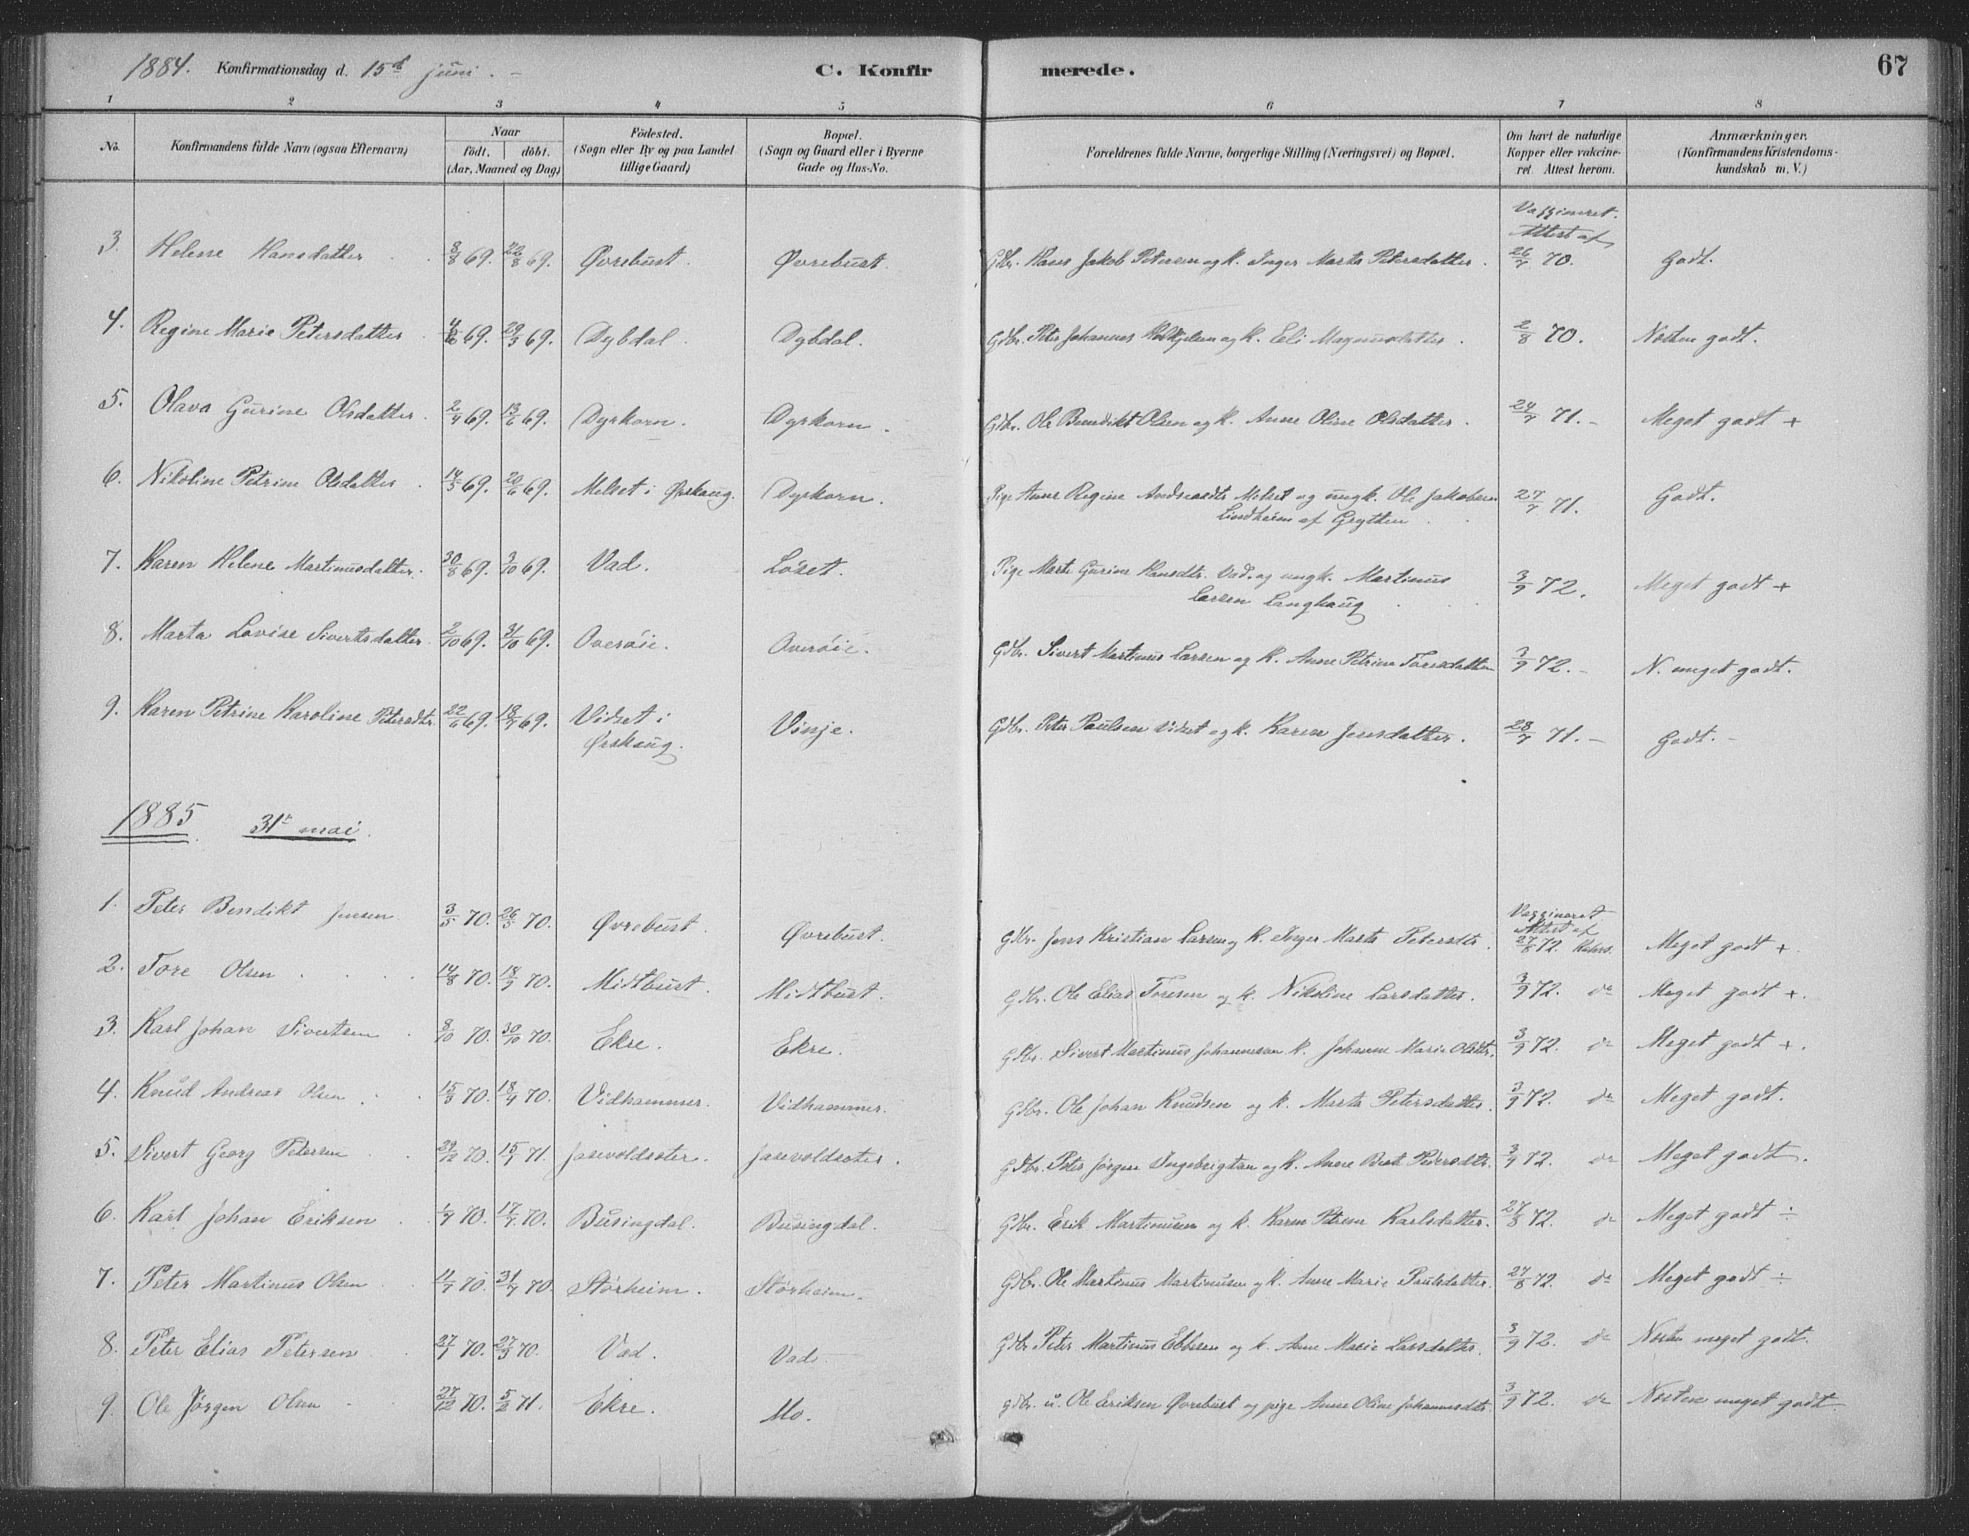 1884. Konfirmationsdag d. 15de juni. C. Konfirmerede. 67
1 2 3 4 5 6 7 8
No. Konfirmandens fulde Navn (ogsaa Efternavn) Naar födt. döbt. (Aar, Maaned og Dag) Födested. (Sogn eller By og paa Landet tillige Gaard) Bopæl. (Sogn og Gaard eller i Byerne Gade og Hus-No. Forældrenes fulde Navne, borgerlige Stilling (Næringsvei) og Bopæl. Om havt de naturlige Kopper eller vakcineret. Attest herom. Anmærkninger. (Konfirmandens Kristendomskundskab m. V.)
3. Helene Hansdatter 8/8 69. 22/8 69. Øvrebust. Øvrebust. Gdbr. Hans Jakob Petersen og k. Inger Marta Petersdatter. Vaxzineret. Attest af 26/7 70. Godt.
4. Regine Marie Petersdatter 69. 69. Dybdal. Dybdal. Gdbr. Peter Johannes og k. Eli Magnusdatter. 2/8 70. Næsten godt.
5. Olava Gurine Olsdatter. 2/4 69. 13/6 69. Dyrkorn. Dyrkorn. Gdbr. Ole Bendikt Olsen og k. Anne Oline Olsdatter. 24/7 71. Meget godt +
6. Nikoline Petrine Olsdatter 14/5 69. 20/6 69. Melset i Ørskoug. Dyrkorn. Pige Anne Regine Andreasdtr Melset og ungk. Ole Jakobsen
Lindheim af Grytten 27/7 71. Godt.
7. Karen Helene Martinusdatter. 30/8 69. 3/10 69. Vad. Løset. Pige Marte Gurine Hansdtr. Vad. og ungk. Martinus
Larsen Langhaug 3/9 72. Meget godt +
8. Marta Lovise Sivertsdatter. 2/10 69. 31/10 69. Overøie. Overøie. Gdbr. Sivert Martinus Larsen og k. Anne Petrine Toresdatter 3/9 72. N. meget godt.
9. Karen Petrine Karoline Petersdtr. 22/6 69. 18/7 69. Vidset i Ørskoug. Vinje. Gdbr. Peter Paulsen Vidset og k. Karen Jensdatter. 28/7 71. Godt.
1885 31te mai.
1. Peter Bendikt Jensen 3/5 70. 26/5 70. Øvrebust. Øvrebust. Gdbr. Jens Kristian Larsen og k. Inger Marta Petersdtr. Vaxzineret Attest af 27/8 72. Meget godt +.
2. Tore Olsen 14/8 70. 18/9 70. Midtbust. Midtbust. Gdbr. Ole Elias Toresen og k. Nikoline Larsdatter. 3/9 72. do Meget godt +.
3. Karl Johan Sivertsen 8/10 70. 30/10 70. Ekre. Ekre. Gdbr. Sivert Martinus Johannesen k. Johanne Marie Olsdtr. 3/9 72. do Meget godt +.
4. Knud Andreas Olsen 15/3 70. 18/4 70. Vidhammer. Vidhammer. Gdbr. Ole Johan Knudsen og k. Marta Petersdatter. 3/9 72. do Meget godt.
5. Sivert Georg Petersen 29/12 70. 15/1 71. Jasevoldsæter. Jasevoldsæter. Gdbr. Peter Jørgen Ingebrigtsen og k. Anne Berte Pedersdtr. 3/9 72. do Meget godt.
6. Karl Johan Eriksen 1/7 70. 17/7 70. Busingdal. Busingdal. Gdbr. Erik Martinusen og k. Karen Petrine Karlsdatter. 27/8 72. do Meget godt ÷
7. Peter Martinus Olsen 11/7 70. 31/7 70. Størheim. Størheim. Gdbr. Ole Martinus Martinusen og k. Anne Marie Paulsdatter. 27/8 72. do Meget godt ÷
8. Peter Elias Petersen 27/1 70. 27/3 70. Vad. Vad. Gdbr Peter Martinus Ebbesen og k. Anne Marie Larsdatter. 3/9 72. do Næsten meget godt.
9. Ole Jørgen Olsen 27/12 70. 5/2 71. Ekre. Mo. Gdbr. u. Ole Eriksen Øvrebust og pige Anne Oline Johannesdtr. 3/9 72. do Næsten meget godt.